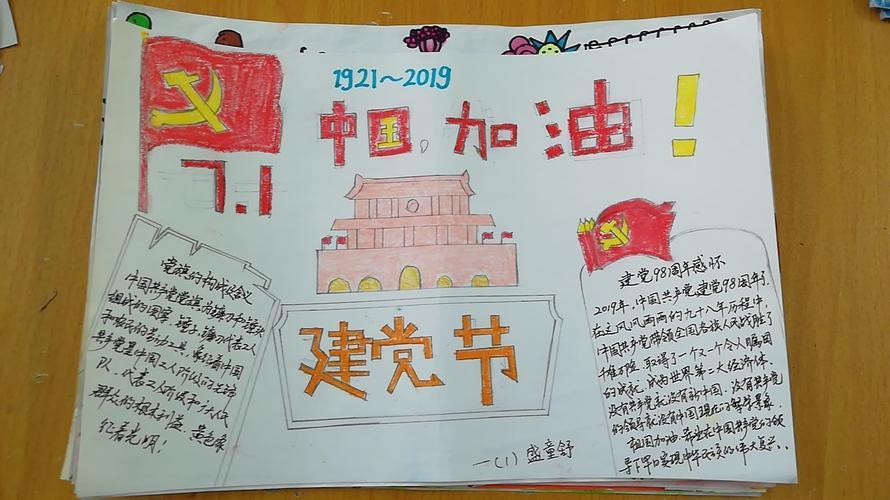 1921~2019
中国,加油!
7.1
建党节
党旗的构成含义
中国共产党党旗为镰刀和锤头
组成的图案,锤头、镰刀代表工人
和农民的劳动工具,象征着中国
共产党是中国工人阶级的先锋
队,代表工人阶级和广大人民
群众的根本利益,黄色象
征着光明!
建党98周年感怀
2019年,中国共产党建党98周年了
在这风风雨雨的九十八年历程中,
中国共产党带领全国各族人民战胜了
千难万险,取得了一个又一个令人瞩目
的成就,成为世界第二大经济体。
没有共产党就没有新中国,没有共产党
的领导就没有中国现在的繁荣景象
祖国加油,希望在中国共产党的领
导下早日实现中华民族的伟大复兴..
一(1) 盛童舒